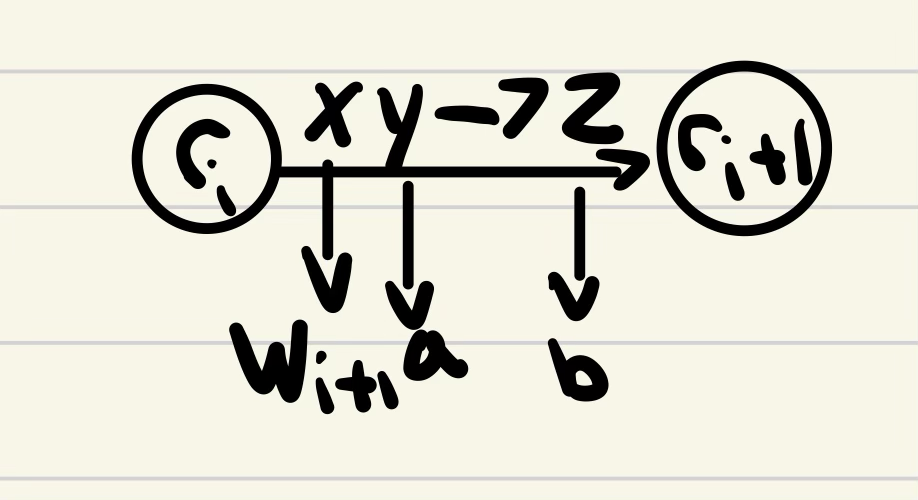 r_i xy→z r_{i+1}
w_{i+1} a b